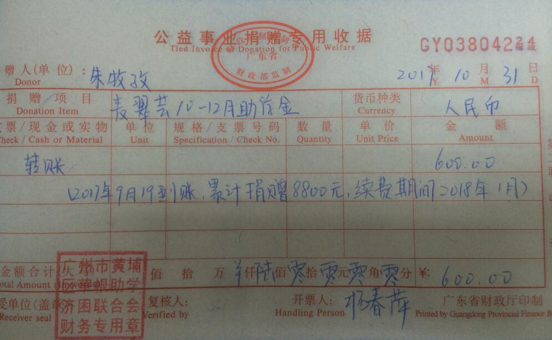 公益事业捐赠专用收据
Tied Invoice of Donation for Public Welfare
广东省
财政部监制
GY03804224
赠人(单位): 朱牧孜 2017年 10月 31日
Donor Y M D
捐赠/项目 10-12月助学金 货币种类 人民币
Donation Item Currency
支票/现金或实物 单位 规格/支票号码 数量 单价 金额
Check / Cash or Material Unit Specification / Check No. Quantity Unit Price Amount
转账 600.00
(2017年9月19到账,累计捐赠8800元,续费期间2018年1月)
金额合计 佰 拾 万 仟陆佰零拾零元零角零分 ¥: 600.00
Total Amount
广州市黄埔
助学
济困联合会
财务专用章
受单位(盖章) 复核人: 开票人: 杨春萍 广东省财政厅印制
Receiver seal Verified by Handling Person Printed by Guangdong Provincial Finance